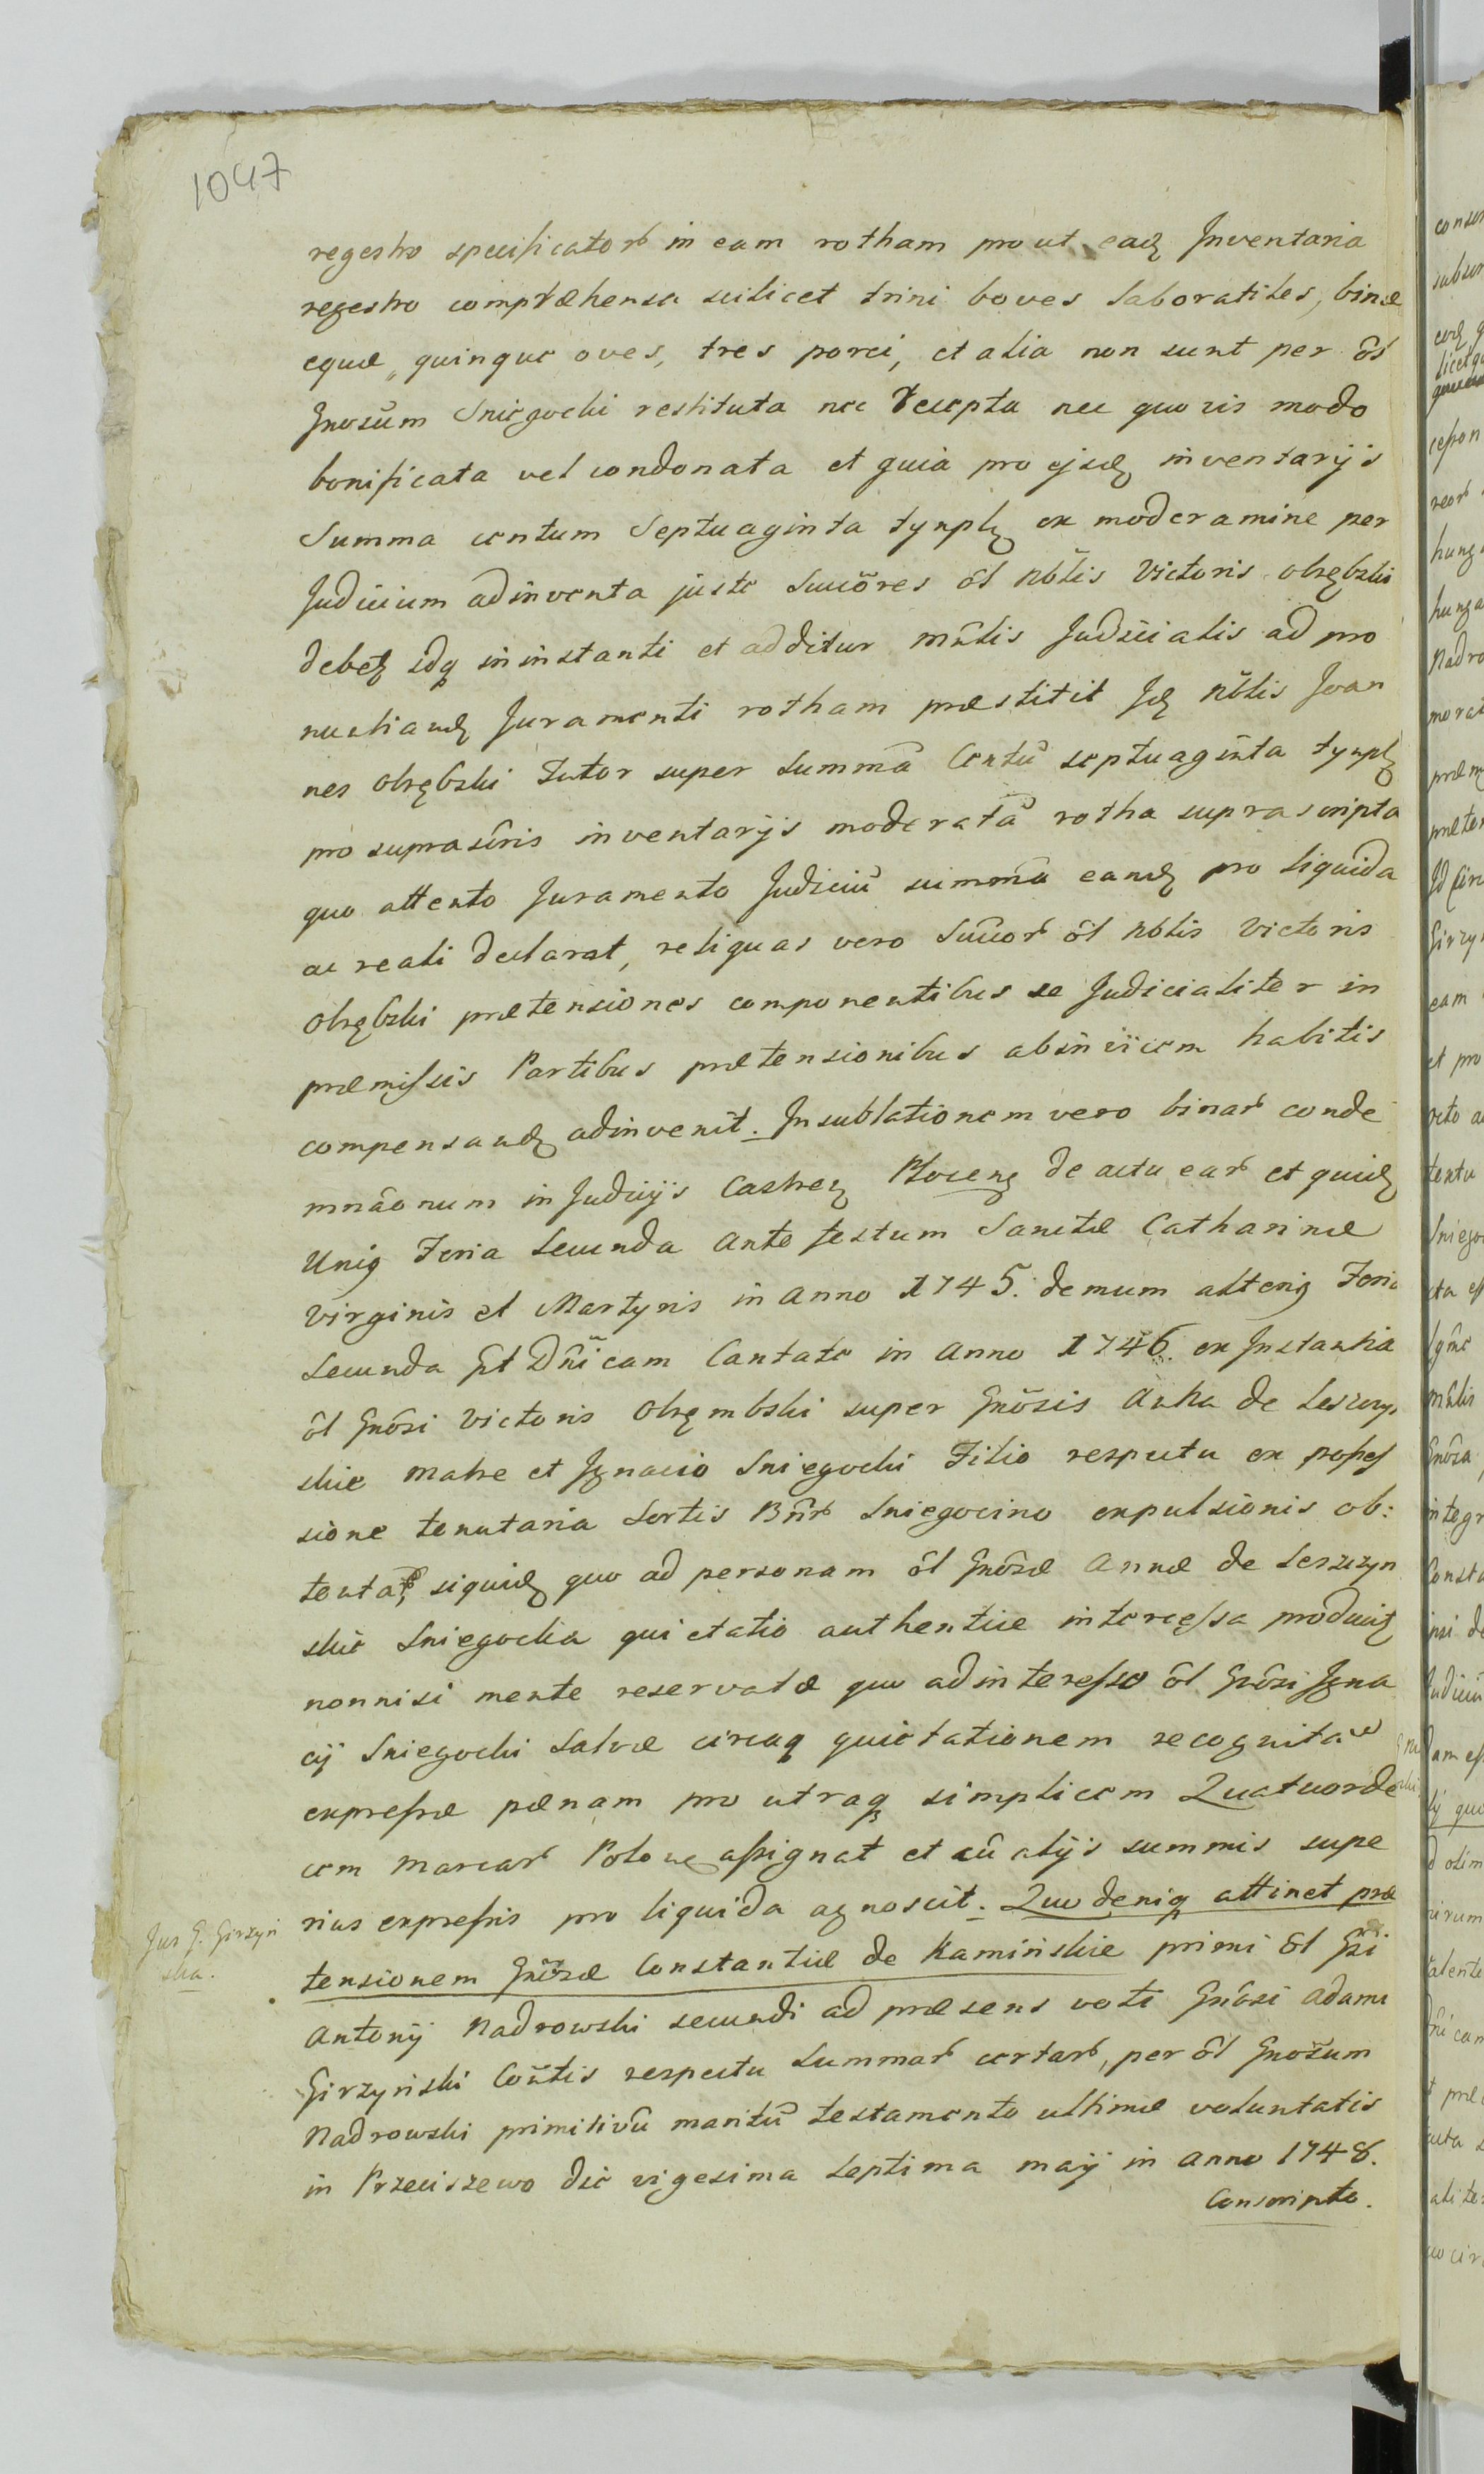 1047
regestro specificatorb in eam rotham prout eadꝫ Inventaria
regestro compræhensa scilicet trini boves laboratiles, binæ
equæ, quinque oves, tres porci, et alia non sunt per ôl
Gnosũm Sniegocki restituta nec recepta nec quovis modo
bonificata vel condonata et quia pro ejsdꝫ inventarijs
Summa centum Septuaginta tynphꝫ ex moderamine per
Judicium adinventa juste Succõres ôl Nbĩlis Victoris Obrębski
debetꝫ idqꝫ in instanti et additur Mnlis Judicialis ad pro
nuntiandꝫ Juramenti rotham præstitit Idꝫ Nbĩlis Joan
nes Obrębski Tutor super Summã Centũ septuaginta tynphꝫ
pro suprascriis inventarijs moderatã rotha suprascripta
quo attento Juramento Judiciũ summã eandꝫ pro liquida
ac reali declarat, reliquas vero Succorb ôl Nblis Victoris
Obrębski prætensiones componentibus se Judicialiter in
præmissis Partibus prætensionibus abinvicem habitis
compensandꝫ adinvenit. In sublationem vero binarb conde
mnãonum in Judicijs Castrenꝫ Plocenꝫ de actu earb et quidꝫ
Uniꝫ Feria Secunda ante festum Sanctæ Catharinæ
Virginis et Martyris in Anno 1745. demum alteriꝫ Feria
Secunda pt Dñicam Cantate in Anno 1746. ex Instantia
ôl Gnõsi Victoris Obrębmski super Gnõsis Anna de Leszczyn
skie Matre et Ignacio Sniegocki Filio respectu ex posses
sione tenutaria Sortis Bñrb Sniegocino expulsionis ob:
tentarb, siquidꝫ quo ad personam ôl Gnõsæ Annæ de Leszczyn
skie Sniegocka quietatio authentice intercessa producitꝫ
nonnisi mente reservatæ quo ad interesse ôl Gnõsi Igna
cij Sniegocki salvæ circaqꝫ quietationem recognitam
expressæ pænam pro utraqꝫ simplicem Quatuorde
cem Marcarb Polonꝫ assignat et cũ alijs summis supe
rius expressis pro liquida agnoscit. Quo deniqꝫ attinet præ
Jus G. Girzyn
ska.
tensionem Gnõsæ Constantiæ de Kamińskie primi ôl Gsi
Antonij Nadrowski secundi ad præsens voti Gnõsi Adami
Girzyński Cõntis respectu Summarb certarb, per ôl Gnosũm
Nadrowski primitivũ maritũ testamento ultimæ voluntatis
in Przeciszewo die vigesima Septima maij in Anno 1748.
Conscripto.